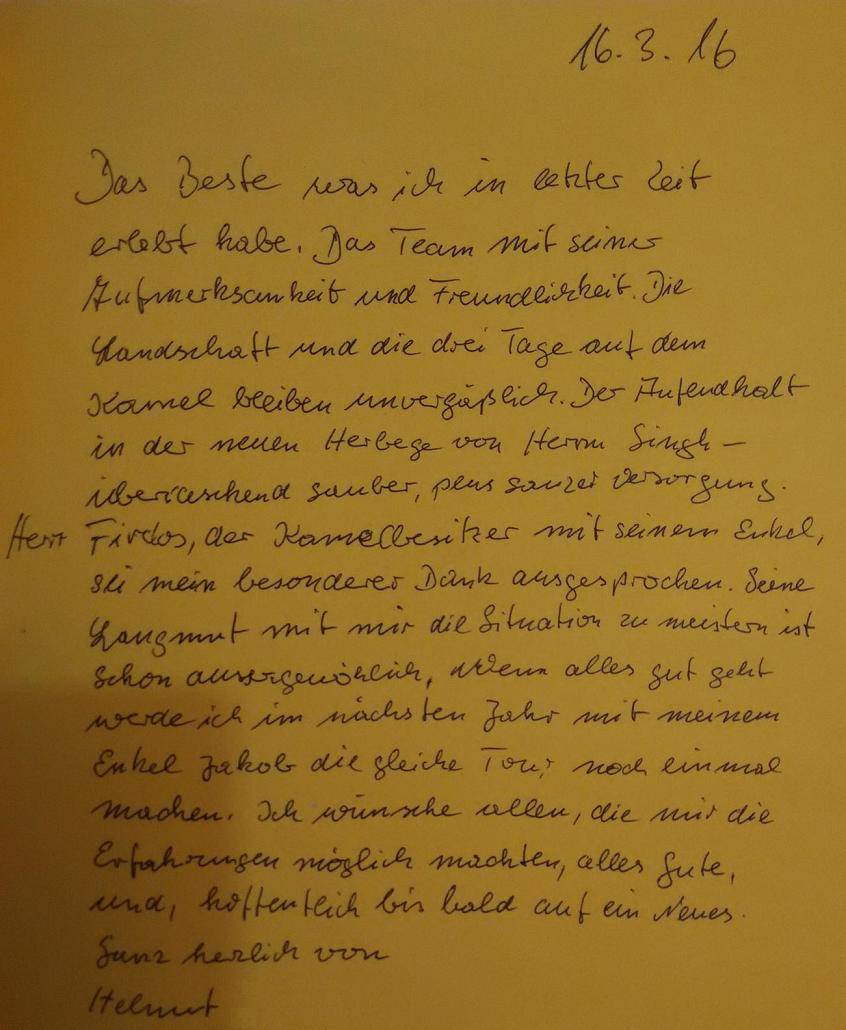 16.3.16
Das Beste was ich in letzter Zeit
erlebt habe. Das Team mit seiner
Aufmerksamkeit und Freundlichkeit. Die
Landschaft und die drei Tage auf dem
Kamel bleiben unvergäßlich. Der Aufendhalt
in der neuen Herbege von Herrn Singh –
überraschend sauber, plus ganzer Versorgung.
Herr Firdos, der Kamelbesitzer mit seinem Enkel,
sei mein besonderer Dank ausgesprochen. Seine
Langmut mit mir die Situation zu meistern ist
schon aussergewöhlich. Wenn alles gut geht
werde ich im nächsten Jahr mit meinem
Enkel Jakob die gleiche Tour noch einmal
machen. Ich wünsche allen, die mir die
Erfahrungen möglich machten, alles Gute,
und, hoffentlich bis bald auf ein Neues.
Ganz herzlich von
Helmut